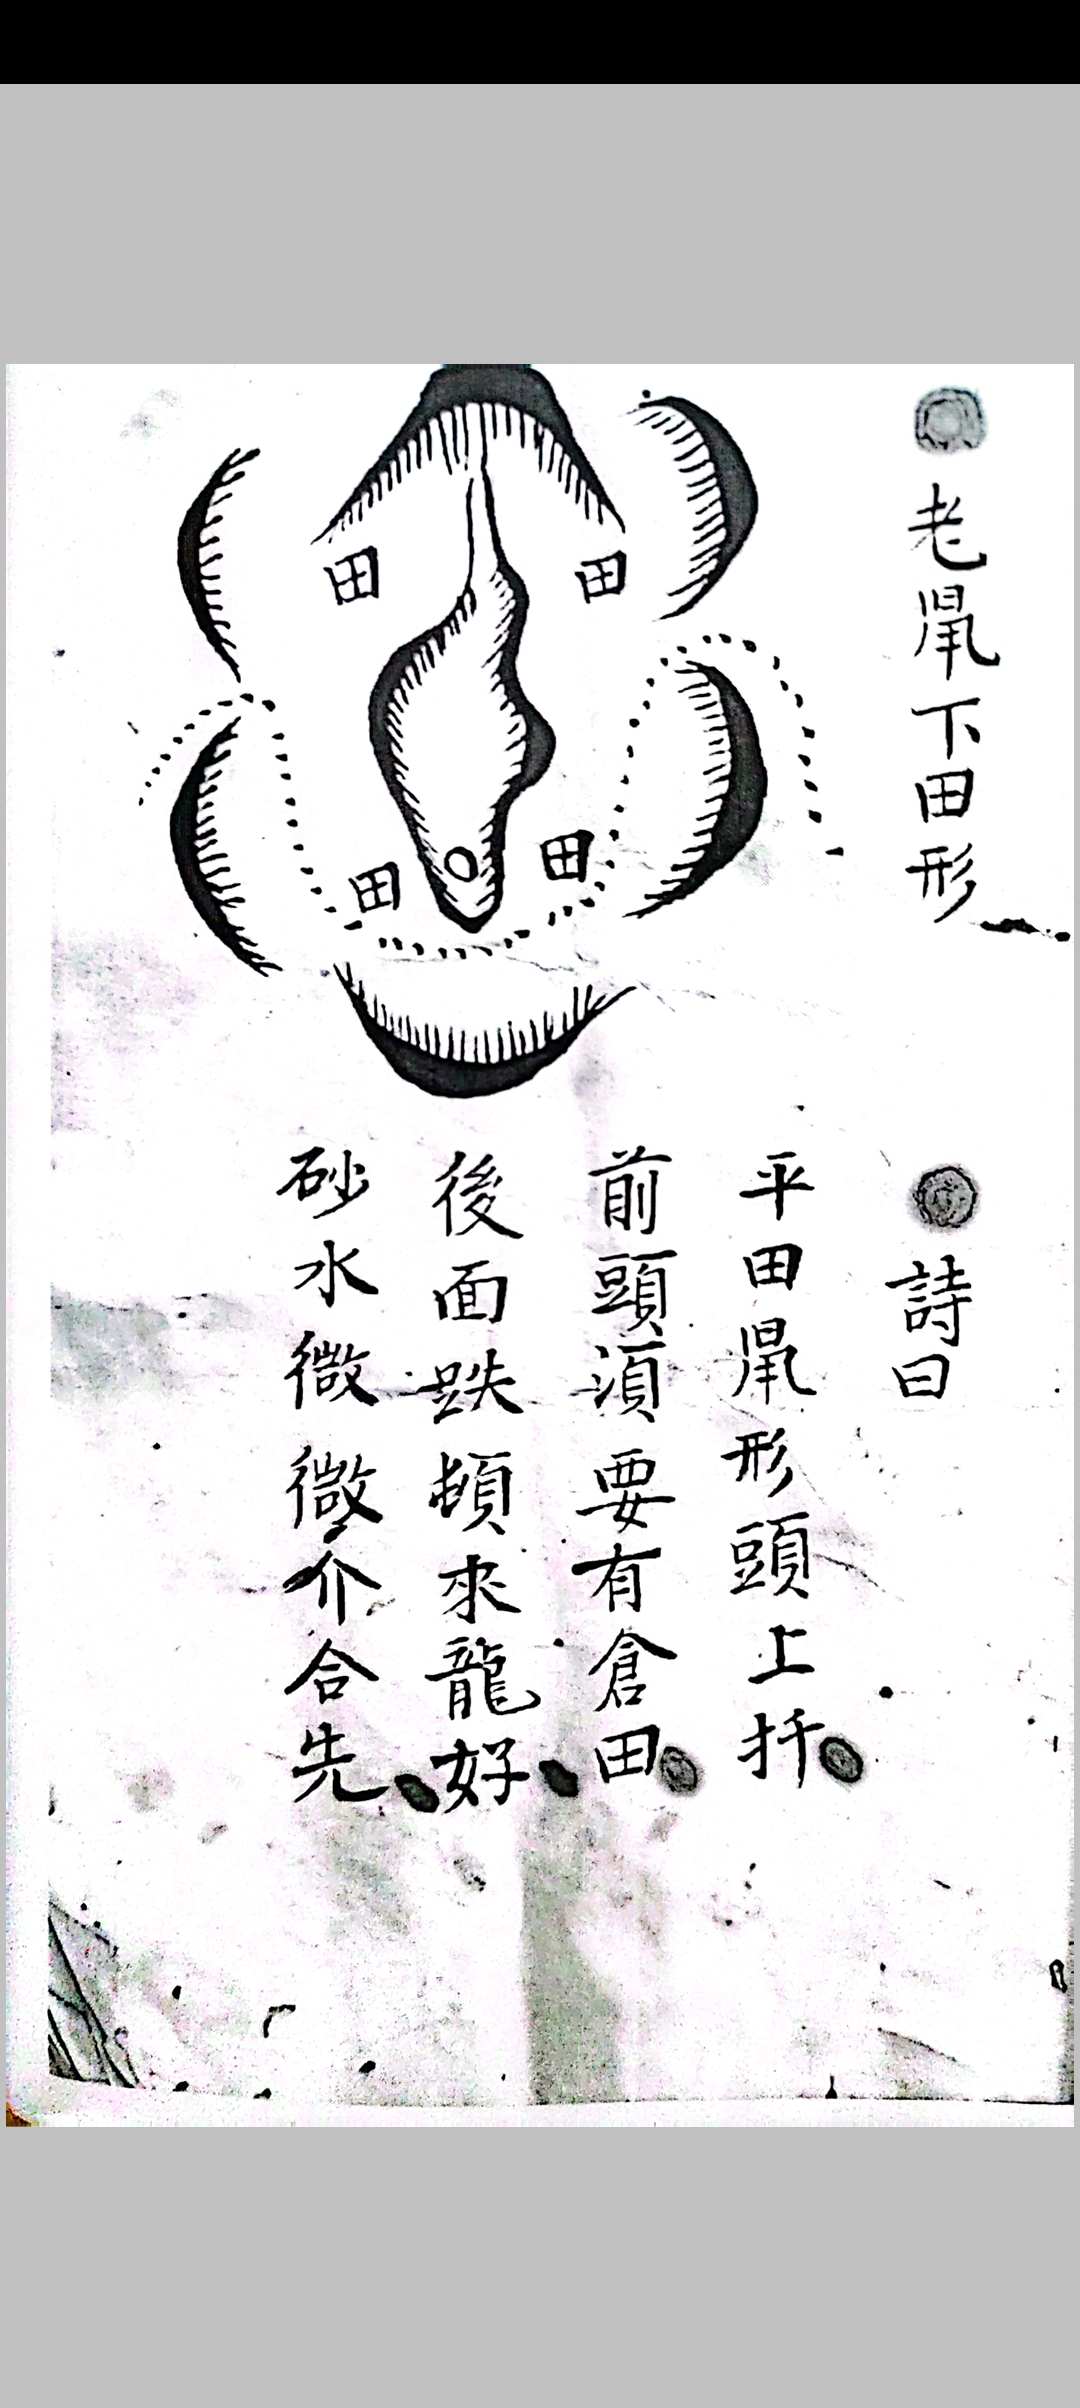 老鼠下田形
田
田
田
田
詩曰
平田鼠形頭上扦
前頭須要有倉田
後面跌頓來龍好
砂水微微介合先